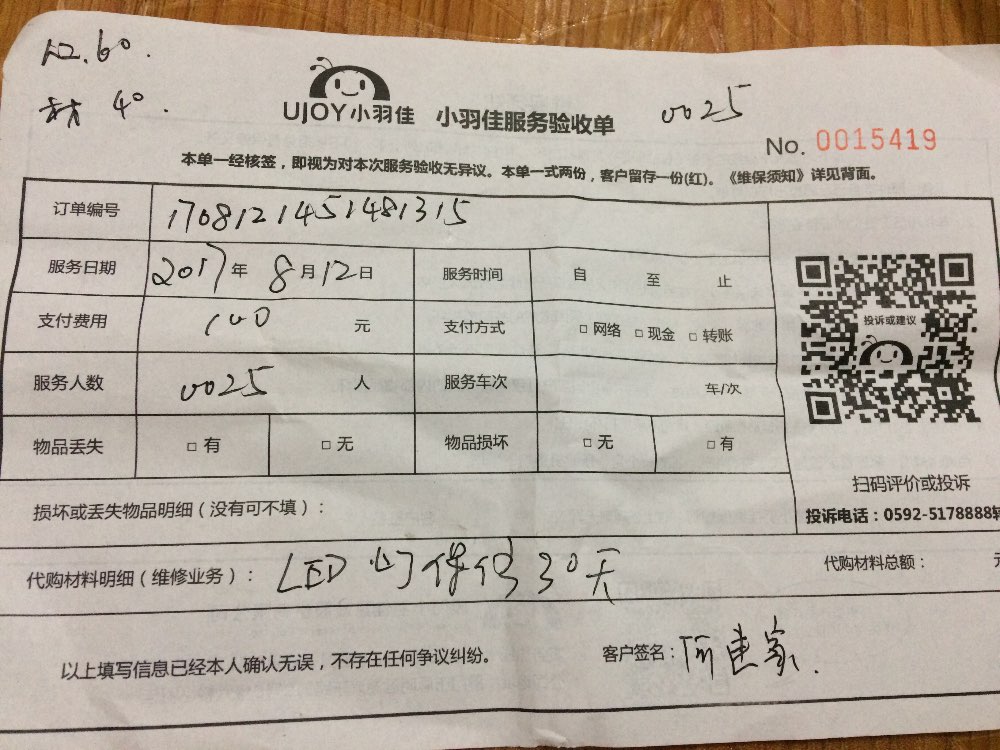 人工.60.
材 40.
UJOY小羽佳 小羽佳服务验收单 0025
No. 0015419
本单一经核签，即视为对本次服务验收无异议。本单一式两份，客户留存一份(红)。《维保须知》详见背面。
订单编号 1708121451481315
服务日期 2017年 8月12日 服务时间 自 至 止
支付费用 100 元 支付方式 □ 网络 □ 现金 □ 转账
投诉或建议
服务人数 0025 人 服务车次 车/次
物品丢失 □ 有 □ 无 物品损坏 □ 无 □ 有
扫码评价或投诉
损坏或丢失物品明细（没有可不填）：
投诉电话：0592-5178888转
代购材料明细（维修业务）： LED 灯保修30天 代购材料总额：
以上填写信息已经本人确认无误，不存在任何争议纠纷。 客户签名：